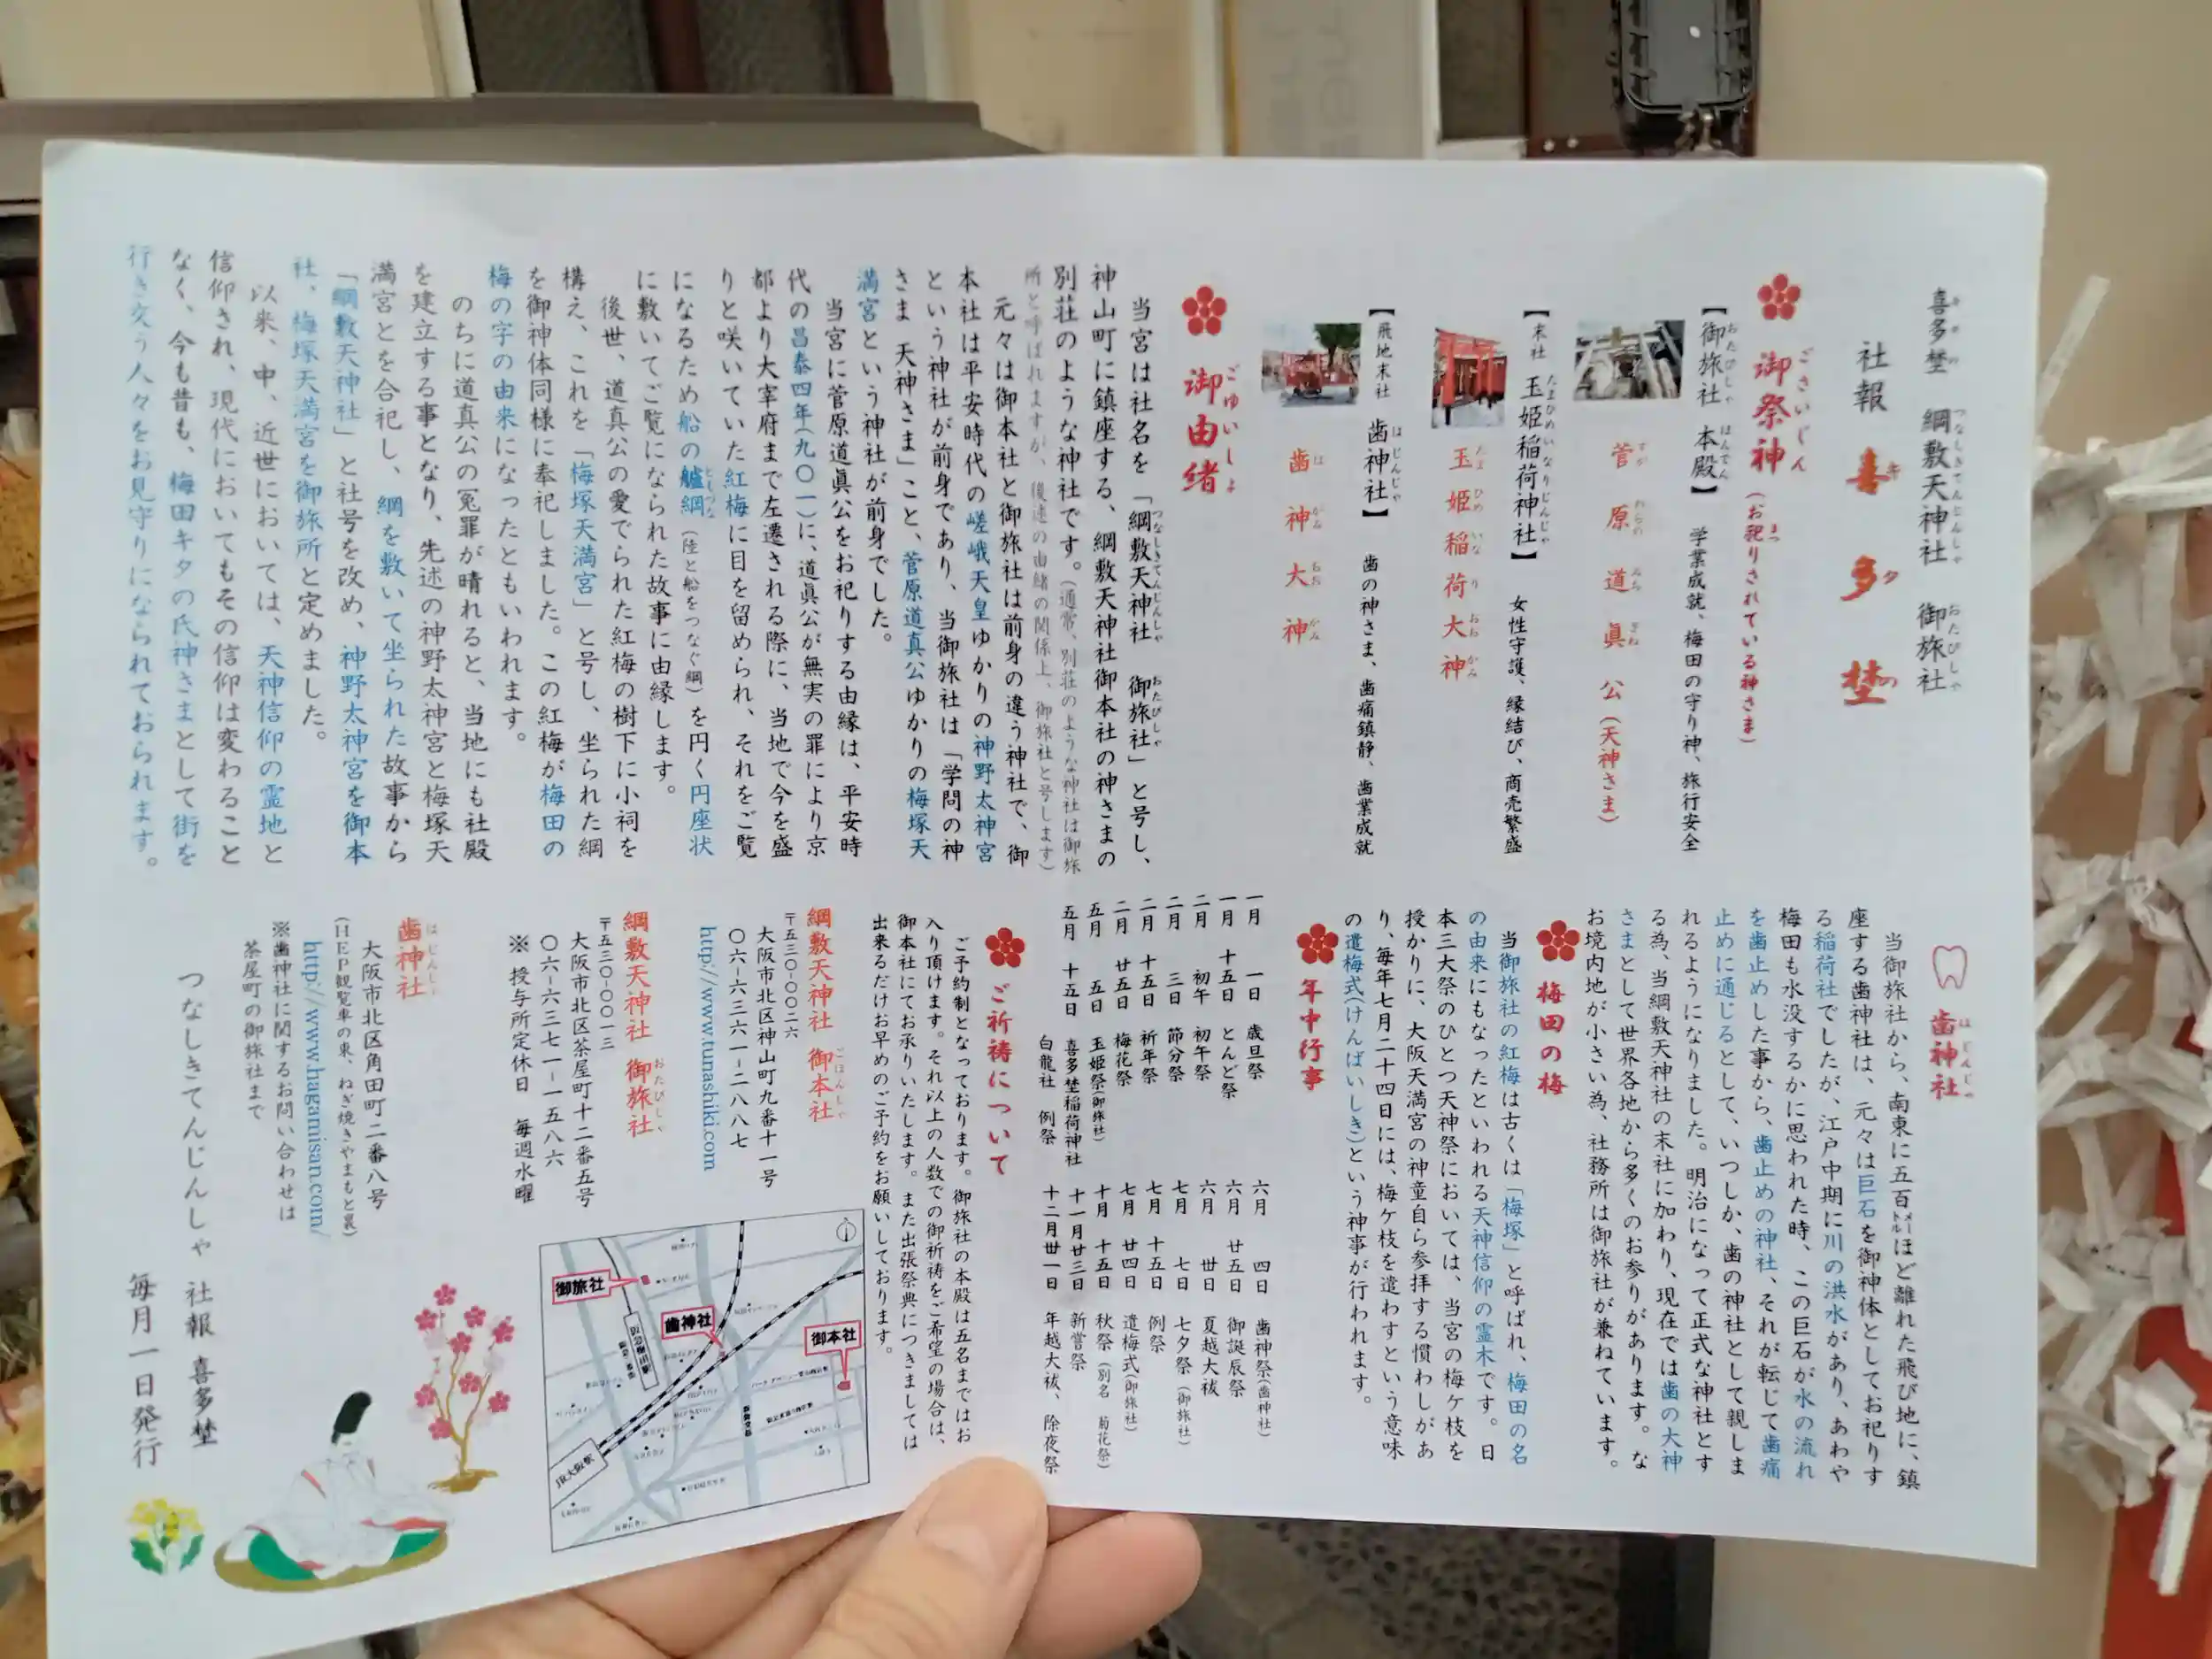 喜多埜 綱敷天神社 御旅社
社報 喜多埜
御祭神(お祀りされている神さま)
【御旅社 本殿】 学業成就、梅田の守り神、旅行安全
菅原道眞公(天神さま)
【末社 玉姫稲荷神社】 女性守護、縁結び、商売繁盛
玉姫稲荷大神
【飛地末社 歯神社】 歯の神さま、歯痛鎮静、歯業成就
歯神大神
御由緒
当宮は社名を「綱敷天神社 御旅社」と号し、
神山町に鎮座する、綱敷天神社御本社の神さまの
別荘のような神社です。(通常、別荘のような神社は御旅
所と呼ばれますが、後述の由緒の関係上、御旅社と号します)
元々は御本社と御旅社は前身の違う神社で、御
本社は平安時代の嵯峨天皇ゆかりの神野太神宮
という神社が前身であり、当御旅社は「学問の神
さま 天神さま」こと、菅原道真公ゆかりの梅塚天
満宮という神社が前身でした。
当宮に菅原道眞公をお祀りする由縁は、平安時
代の昌泰四年(九〇一)に、道眞公が無実の罪により京
都より大宰府まで左遷される際に、当地で今を盛
りと咲いていた紅梅に目を留められ、それをご覧
になるため船の艫綱(陸と船をつなぐ綱)を円く円座状
に敷いてご覧になられた故事に由縁します。
後世、道真公の愛でられた紅梅の樹下に小祠を
構え、これを「梅塚天満宮」と号し、坐られた綱
を御神体同様に奉祀しました。この紅梅が梅田の
梅の字の由来になったともいわれます。
のちに道真公の冤罪が晴れると、当地にも社殿
を建立する事となり、先述の神野太神宮と梅塚天
満宮とを合祀し、綱を敷いて坐られた故事から
「綱敷天神社」と社号を改め、神野太神宮を御本
社、梅塚天満宮を御旅所と定めました。
以来、中、近世においては、天神信仰の霊地と
信仰され、現代においてもその信仰は変わること
なく、今も昔も、梅田キタの氏神さまとして街を
行き交う人々をお見守りになられております。
歯神社
当御旅社から、南東に五百メートルほど離れた飛び地に、鎮
座する歯神社は、元々は巨石を御神体としてお祀りす
る稲荷社でしたが、江戸中期に川の洪水があり、あわや
梅田も水没するかに思われた時、この巨石が水の流れ
を歯止めした事から、歯止めの神社、それが転じて歯痛
止めに通じるとして、いつしか、歯の神社として親しま
れるようになりました。明治になって正式な神社とす
る為、当綱敷天神社の末社に加わり、現在では歯の大神
さまとして世界各地から多くのお参りがあります。な
お境内地が小さい為、社務所は御旅社が兼ねています。
梅田の梅
当御旅社の紅梅は古くは「梅塚」と呼ばれ、梅田の名
の由来にもなったといわれる天神信仰の霊木です。日
本三大祭のひとつ天神祭においては、当宮の梅ケ枝を
授かりに、大阪天満宮の神童自ら参拝する慣わしがあ
り、毎年七月二十四日には、梅ケ枝を遣わすという意味
の遣梅式(けんばいしき)という神事が行われます。
年中行事
一月 一日 歳旦祭
一月 十五日 とんど祭
二月 初午 初午祭
二月 三日 節分祭
二月 十五日 祈年祭
二月 廿五日 梅花祭
五月 五日 玉姫祭(御旅社)
五月 十五日 喜多埜稲荷神社
白龍社 例祭
六月 四日 歯神祭(歯神社)
六月 廿五日 御誕辰祭
六月 卅日 夏越大祓
七月 七日 七夕祭(御旅社)
七月 十五日 例祭
七月 廿四日 遣梅式(御旅社)
十月 十五日 秋祭(別名 菊花祭)
十一月廿三日 新嘗祭
十二月卅一日 年越大祓、除夜祭
ご祈祷について
ご予約制となっております。御旅社の本殿は五名まではお
入り頂けます。それ以上の人数での御祈祷をご希望の場合は、
御本社にてお承りいたします。また出張祭典につきましては
出来るだけお早めのご予約をお願いしております。
綱敷天神社 御本社
〒五三〇-〇〇二六
大阪市北区神山町九番十一号
〇六-六三六一-二八八七
http://www.tunashiki.com
綱敷天神社 御旅社
〒五三〇-〇〇一三
大阪市北区茶屋町十二番五号
〇六-六三七一-一五八六
※ 授与所定休日 毎週水曜
歯神社
大阪市北区角田町二番八号
(HEP観覧車の東、ねぎ焼きやまもと裏)
http://www.hagamisan.com/
※歯神社に関するお問い合わせは
茶屋町の御旅社まで
御旅社
歯神社
御本社
阪急梅田駅
JR大阪駅
つなしきてんじんしゃ 社報 喜多埜
毎月一日発行